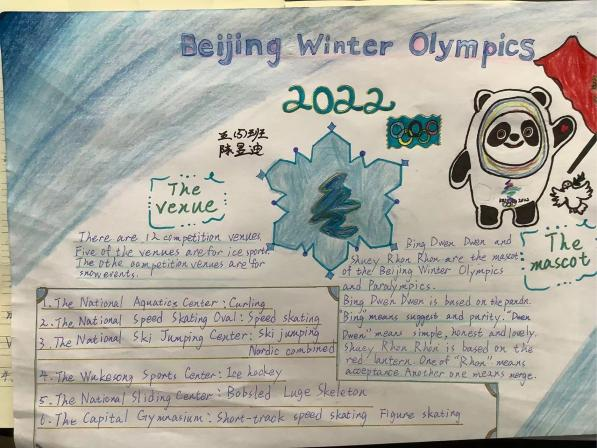 Beijing Winter Olympics
2022
五(5)班
陈昱迪
The
venue
There are 12 competition venues.
Five of the venues are for ice sports.
The othe competition venues are for
snow events.
1. The National Aquatics Center: Curling
2. The National Speed Skating Oval: Speed skating
3. The National Ski Jumping Center: Ski jumping
Nordic combined
4. The Wukesong Sports Center: Ice hockey
5. The National Sliding Center: Bobsled Luge Skeleton
6. The Capital Gymnasium: Short-track speed skating Figure skating
The
mascot
Bing Dwen Dwen and
Shuey Rhon Rhon are the mascot
of the Beijing Winter Olympics
and Paralympics.
Bing Dwen Dwen is based on the panda.
"Bing" means suggest and purity. "Dwen
Dwen" means simple, honest and lovely.
Shuey Rhon Rhon is based on the
red lantern. One of "Rhon" means
acceptance. Another one means merge.